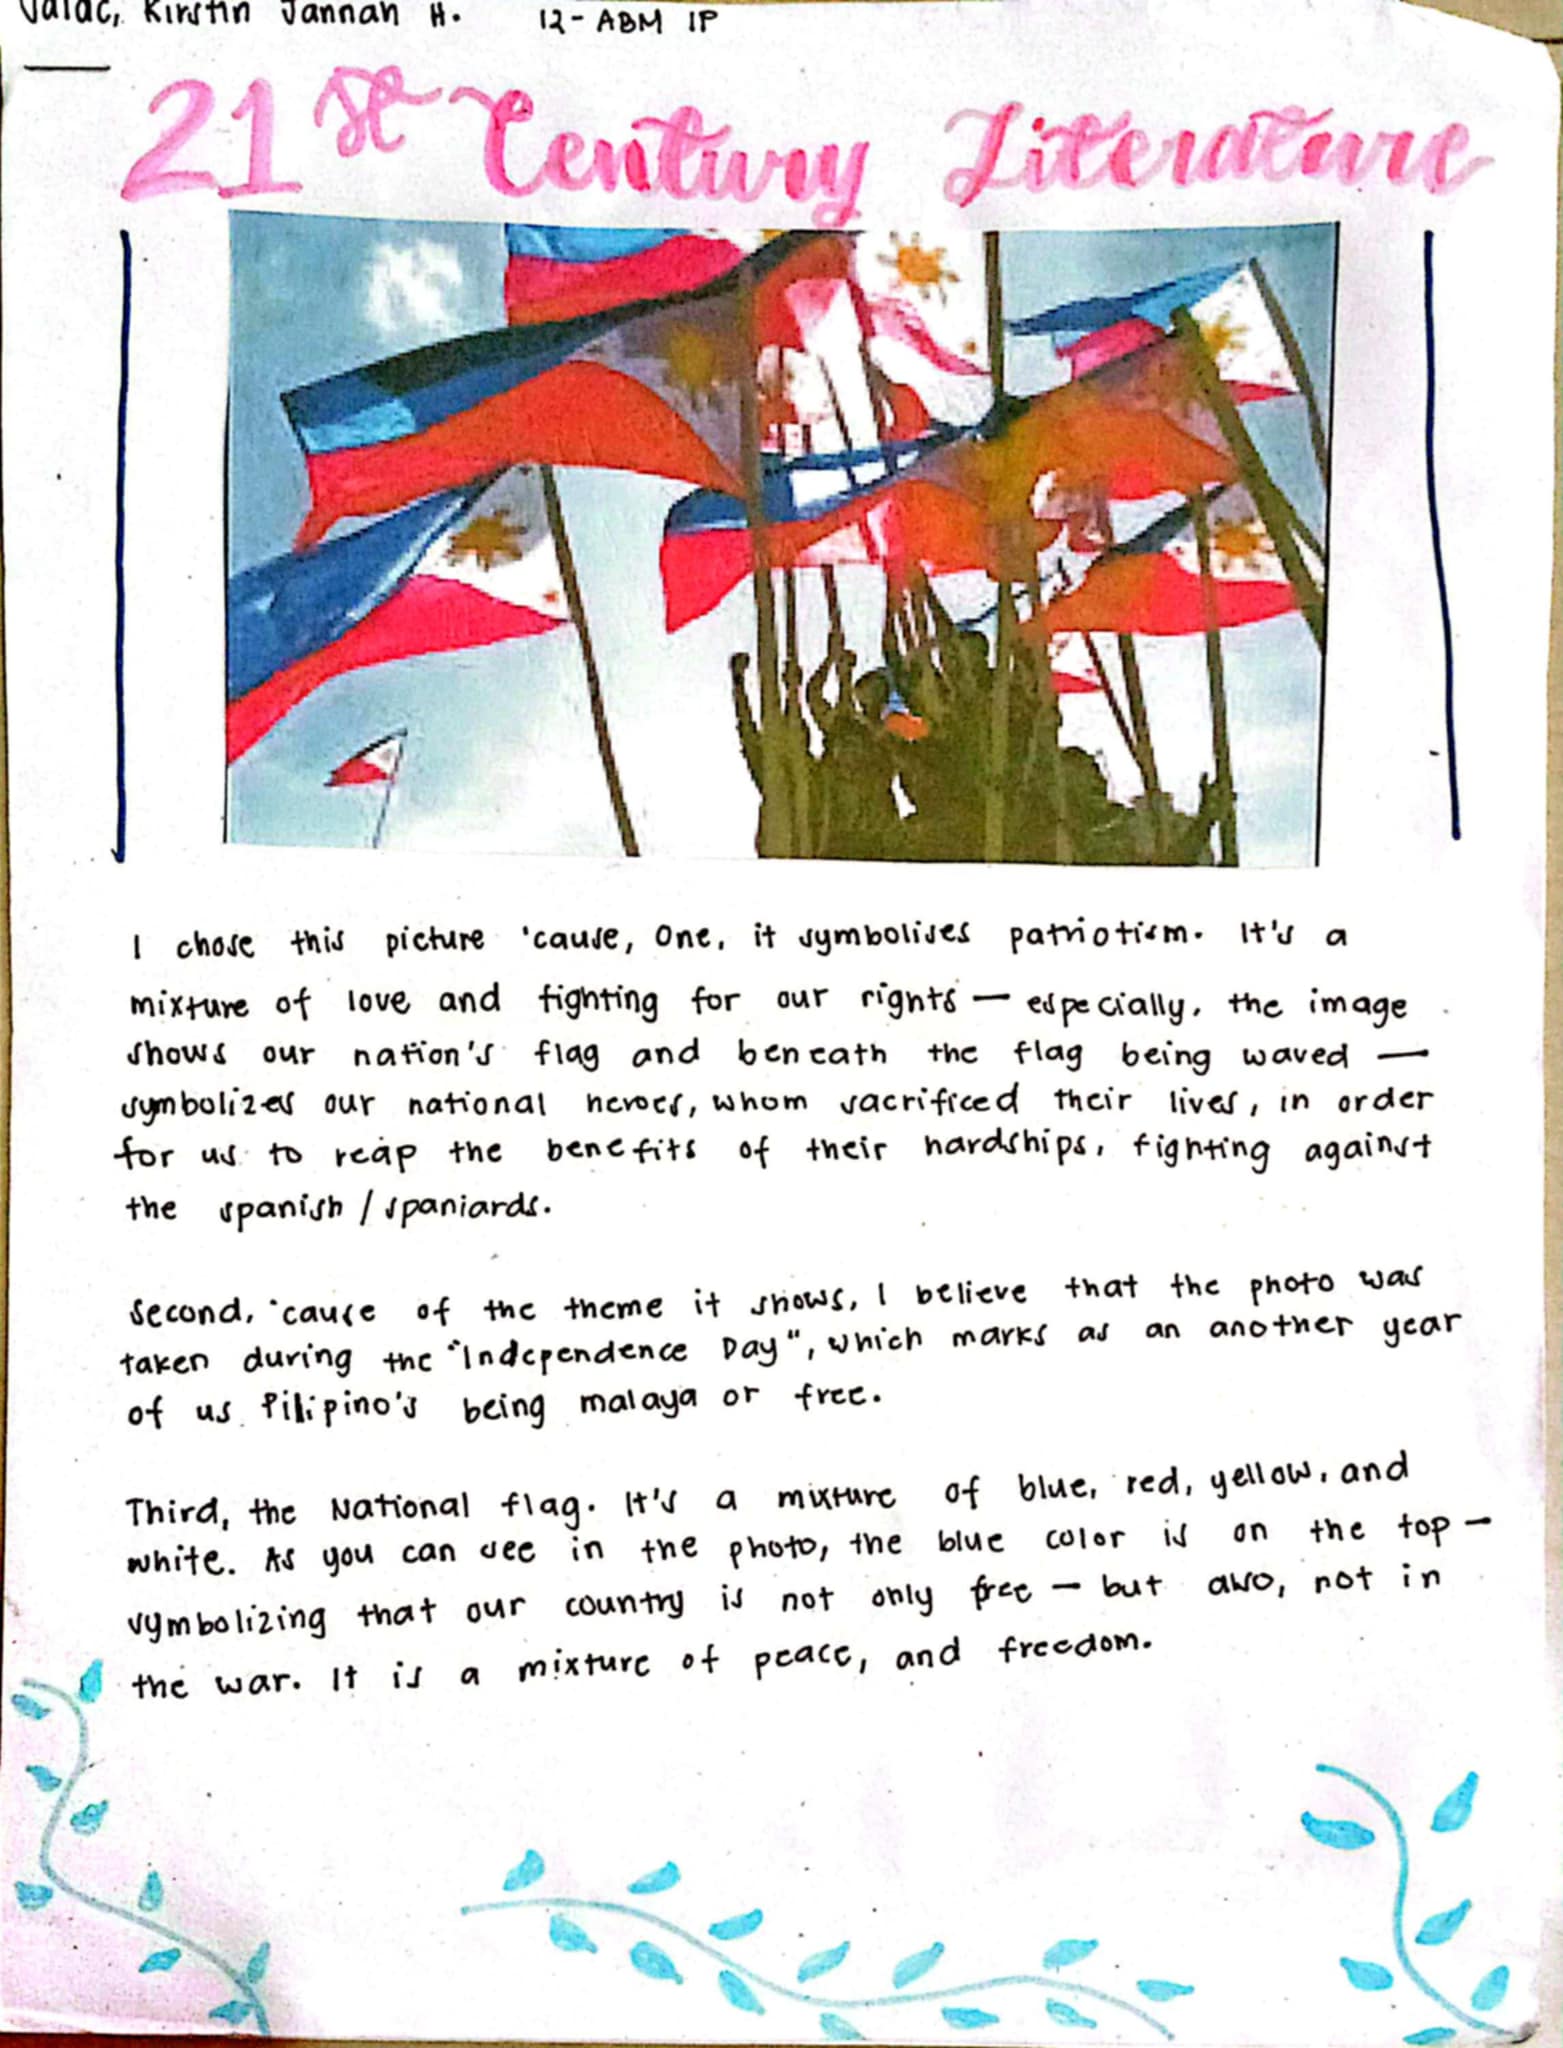 Kirstin Jannah H. 12 - ABM 1P
21st Century Literature
I chose this picture 'cause, one, it symbolises patriotism. It's a
mixture of love and fighting for our rights — especially, the image
shows our nation's flag and beneath the flag being waved —
symbolizes our national heroes, whom sacrificed their lives, in order
for us to reap the benefits of their hardships, fighting against
the spanish / spaniards.
Second, 'cause of the theme it shows, I believe that the photo was
taken during the "Independence Day", which marks as an another year
of us Pilipino's being malaya or free.
Third, the National flag. It's a mixture of blue, red, yellow, and
white. As you can see in the photo, the blue color is on the top —
symbolizing that our country is not only free — but also, not in
the war. It is a mixture of peace, and freedom.